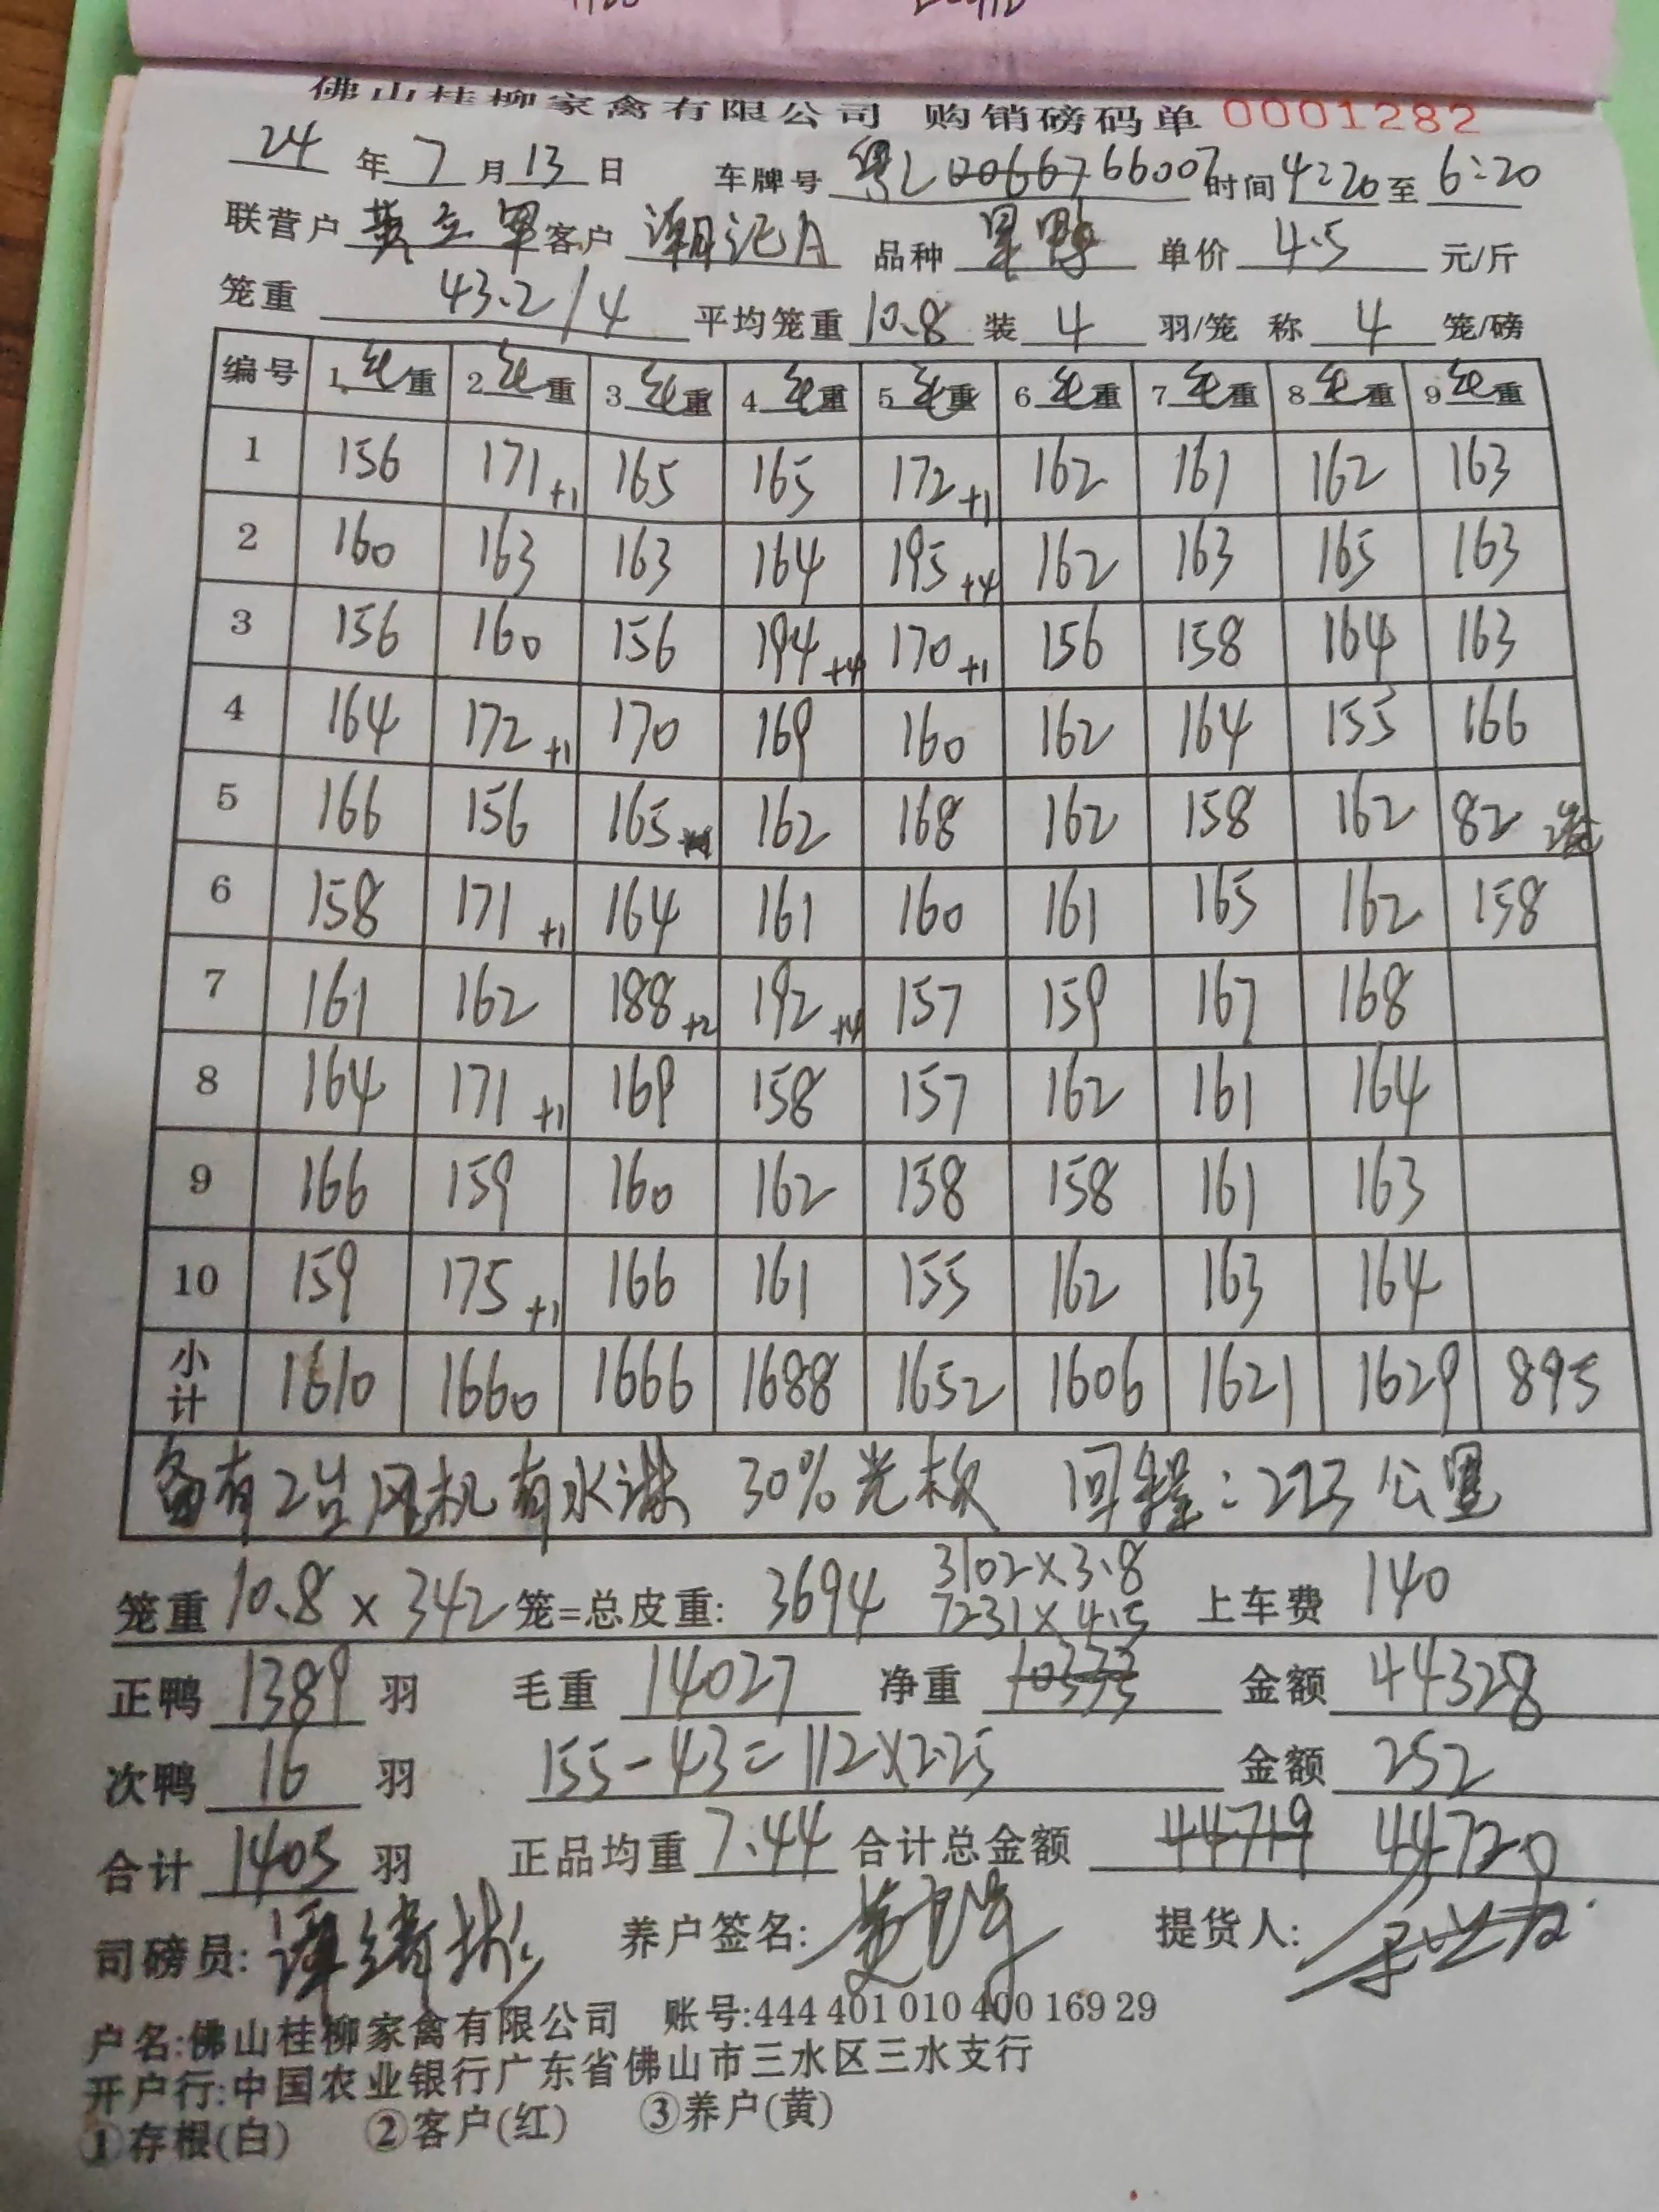 佛山桂柳家禽有限公司 购销磅码单 0001282
24 年 7 月 13 日 车牌号 粤L 66007 时间 4:20 至 6:20
联营户 黄立军 客户 潮记A 品种 果鸭 单价 4.5 元/斤
笼重 43.2/4 平均笼重 10.8 装 4 羽/笼 称 4 笼/磅
编号 1 毛重 2 毛重 3 毛重 4 毛重 5 毛重 6 毛重 7 毛重 8 毛重 9 毛重
1 156 171 +1 165 165 172 +1 162 161 162 163
2 160 163 163 164 195 +4 162 163 165 163
3 156 160 156 194 +4 170 +1 156 158 164 163
4 164 172 +1 170 169 160 162 164 155 166
5 166 156 165 162 168 162 158 162 82 2笼
6 158 171 +1 164 161 160 161 165 162 158
7 161 162 188 +2 192 +4 157 159 167 168
8 164 171 +1 169 158 157 162 161 164
9 166 159 160 162 158 158 161 163
10 159 175 +1 166 161 155 162 163 164
小计 1610 1660 1666 1688 1652 1606 1621 1629 895
备有2台风机有水淋 30%光板 回程:223公里
3102×3.8
笼重 10.8 × 342 笼=总皮重: 3694 7231×4.5 上车费 140
正鸭 1389 羽 毛重 14027 净重 10333 金额 44328
次鸭 16 羽 155-43=112×2.25 金额 252
合计 1405 羽 正品均重 7.44 合计总金额 44719 44720
司磅员: 谭绪彬 养户签名: 提货人:
户名:佛山桂柳家禽有限公司 账号:444 401 010 400 169 29
开户行:中国农业银行广东省佛山市三水区三水支行
①存根(白) ②客户(红) ③养户(黄)